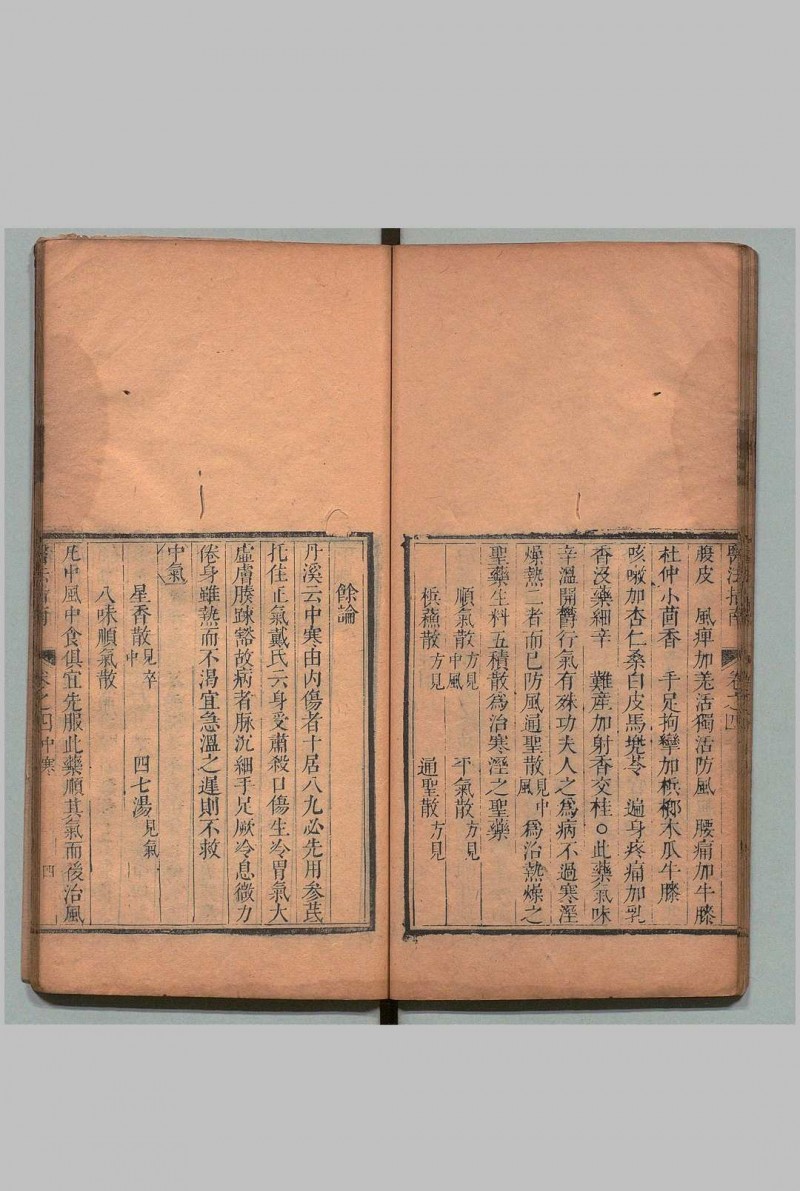 醫法指南 卷之四
腹皮　風痺加羌活獨活防風　腰痛加牛膝
杜仲小茴香　手足拘攣加梹榔木瓜牛膝
咳嗽加杏仁桑白皮馬兜苓　遍身疼痛加乳
香沒藥細辛　難産加射香交桂○此藥氣味
辛溫開鬱行氣有殊功夫人之爲病不過寒溼
燥熱二者而已防風通聖散見中風爲治熱燥之
聖藥生料五積散爲治寒溼之聖藥
順氣散方見中風　平氣散方見
梹蘓散方見　通聖散方見
餘論
丹溪云中寒由內傷者十居八九必先用參芪
托住正氣戴氏云身受肅殺口傷生冷胃氣大
虛膚腠踈豁故病者脉沉細手足厥冷息微力
倦身雖熱而不渴宜急溫之遲則不救
中氣
星香散見卒中　四七湯見氣
八味順氣散
凡中風中食俱宜先服此藥順其氣而後治風
卷之四中寒　四